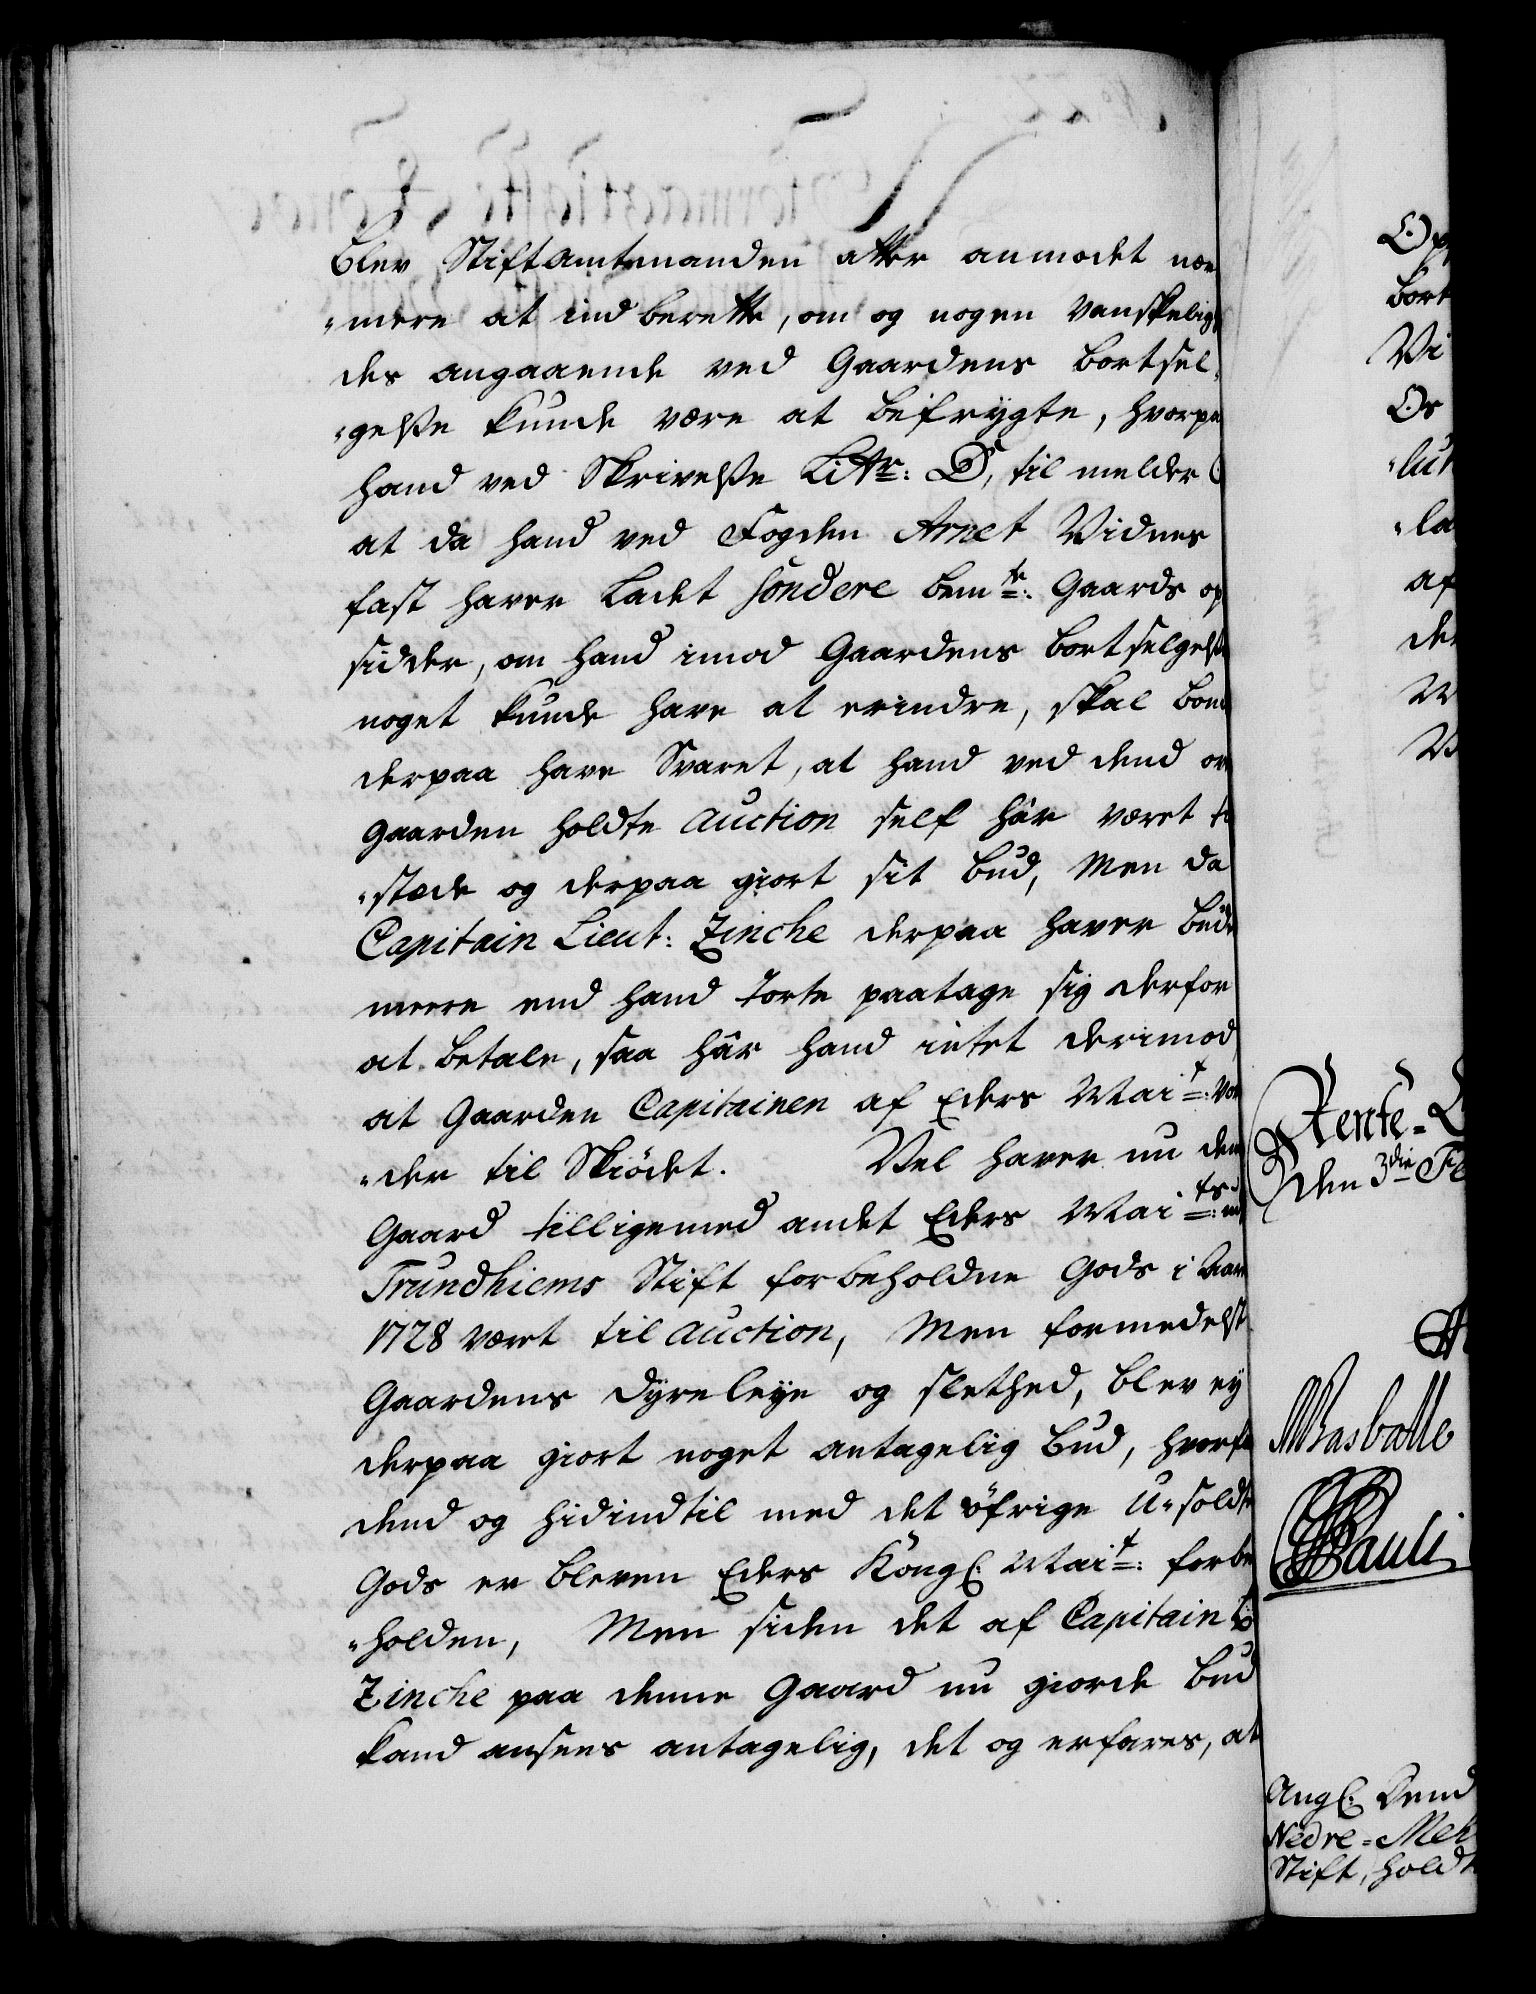 Blev Stiftamtmanden atter anmodet nær
"mere at ind berette, om og nogen vanskelig
des angaaende ved Gaardens bortsel,
"gelsse kunde være at befrygte, hvorpa
hand ved Skrivelsse Littr: D, til melder
at da hand ved Fogden Arnet Vidnes
fast haver ladet sondere bemte: Gaards op
sidder, om hand imod Gaardens bortselgelsse
noget kunde have at erindre, skal bond
derpaa have Svaret, at hand ved dend ov
Gaarden holdte Auction self hâr været ti
"stede og derpaa giort sit bud, Men da
Capitain Lieut: Zinche derpaa haver bud
meere end hand torte paatage sig derfor
at betale, saa hâr hand intet derimod,
at Gaarden Capitainen af Eders Mait: vor
"der til Skiödet. Vel haver nu den
Gaard tilligemed andet Eders Maits: ud
Trundhiems Stift forbeholdne Gods i Aar
1728 været til Auction, Men formedelst
Gaardens dyre leye og slethed, blev ey
derpaa giort noget antagelig bud, hvorfo
dend og hidindtil med det öfrige U-soldte
Gods er bleven Eders Kongl: Mait: forbe
"holden, Men siden det af Capitain Li
Zinche paa denne Gaard nu giorde bud
kand ansees antagelig, det og erfares, at
Opp
bort
Vi
Os
"lun
"la
af
der
Rente=
den 3die Fe
Basballe
Pauli
Angl: Dend
Nedre=Meh
Stift, holdt